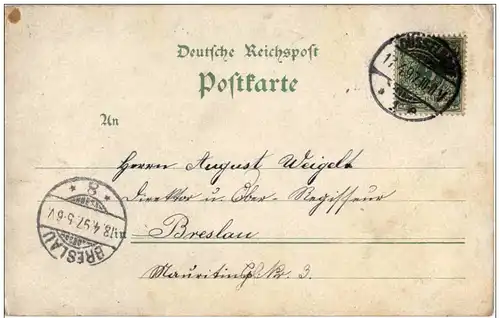 Deutsche Reichspost
Postkarte
An
Herrn August Weigelt
Direktor u Ober-Regisseur
in
Breslau
Mauritiuspl. No. 3.
BRESLAU
8
18.4.97.5-6V.